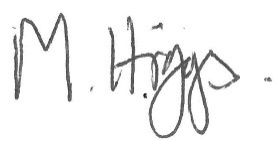 M. Higgs.